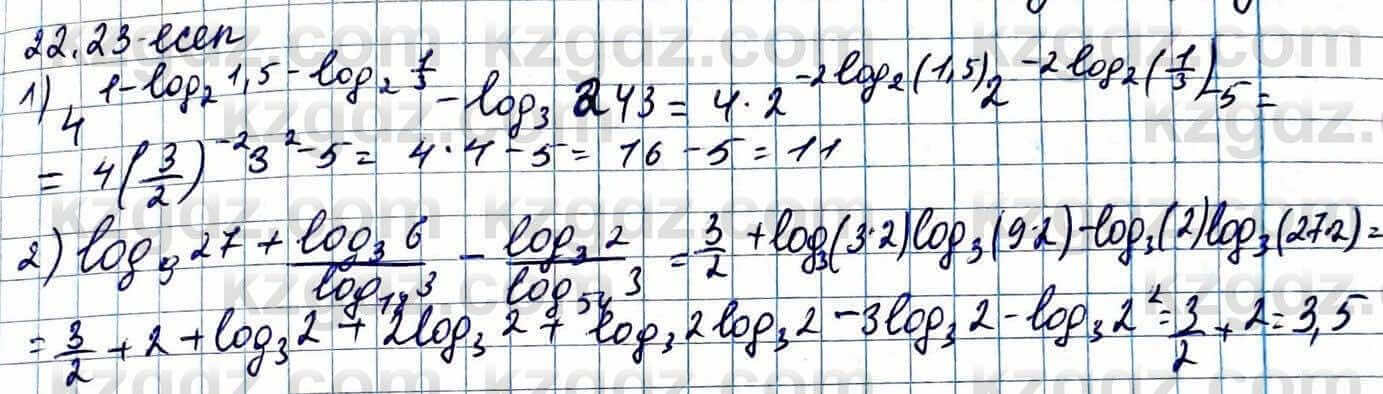 22.23-есеп
1) 4^{1-log₂1,5-log₂ 1/3} - log₃ 243 = 4·2^{-2log₂(1,5)} 2^{-2log₂(1/3)} - 5 =
= 4(3/2)^{-2} 3² - 5 = 4·4 - 5 = 16 - 5 = 11
2) log₉ 27 + log₃ 6 / log₁₈ 3 - log₃ 2 / log₅₄ 3 = 3/2 + log₃(3·2)log₃(9·2) - log₃(2)log₃(27·2) =
= 3/2 + 2 + log₃2 + 2log₃2 + log₃2log₃2 - 3log₃2 - log₃2² = 3/2 + 2 = 3,5
kzgdz.com